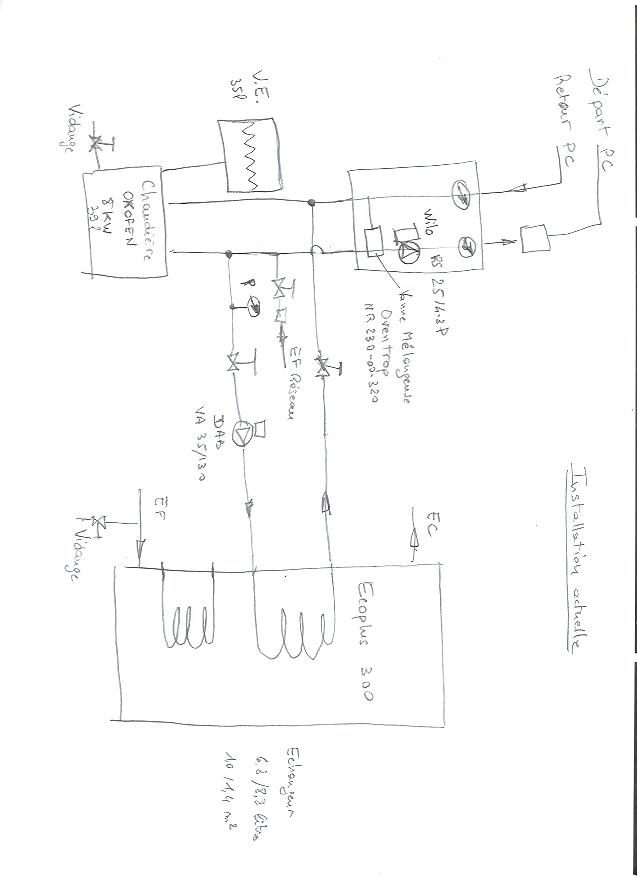 Installation actuelle
Départ PC
Retour PC
Wilo
RS 25/6-3P
Vanne Mélangeuse
Oventrop
NR 230-00-320
V.E.
35l
Vidange
Chaudière
OKOFEN
8 KW
P
EF Réseau
DAB
VA 35/130
EC
EF
Vidange
Ecoplus 300
Echangeur
6,8/8,3 litres
1,0/1,4 m²